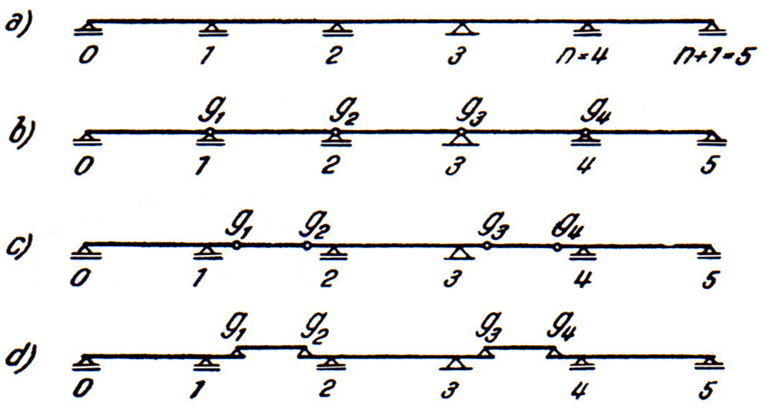 a)
0 1 2 3 n=4 n+1=5
b) g₁ g₂ g₃ g₄
0 1 2 3 4 5
c) g₁ g₂ g₃ g₄
0 1 2 3 4 5
d) g₁ g₂ g₃ g₄
0 1 2 3 4 5